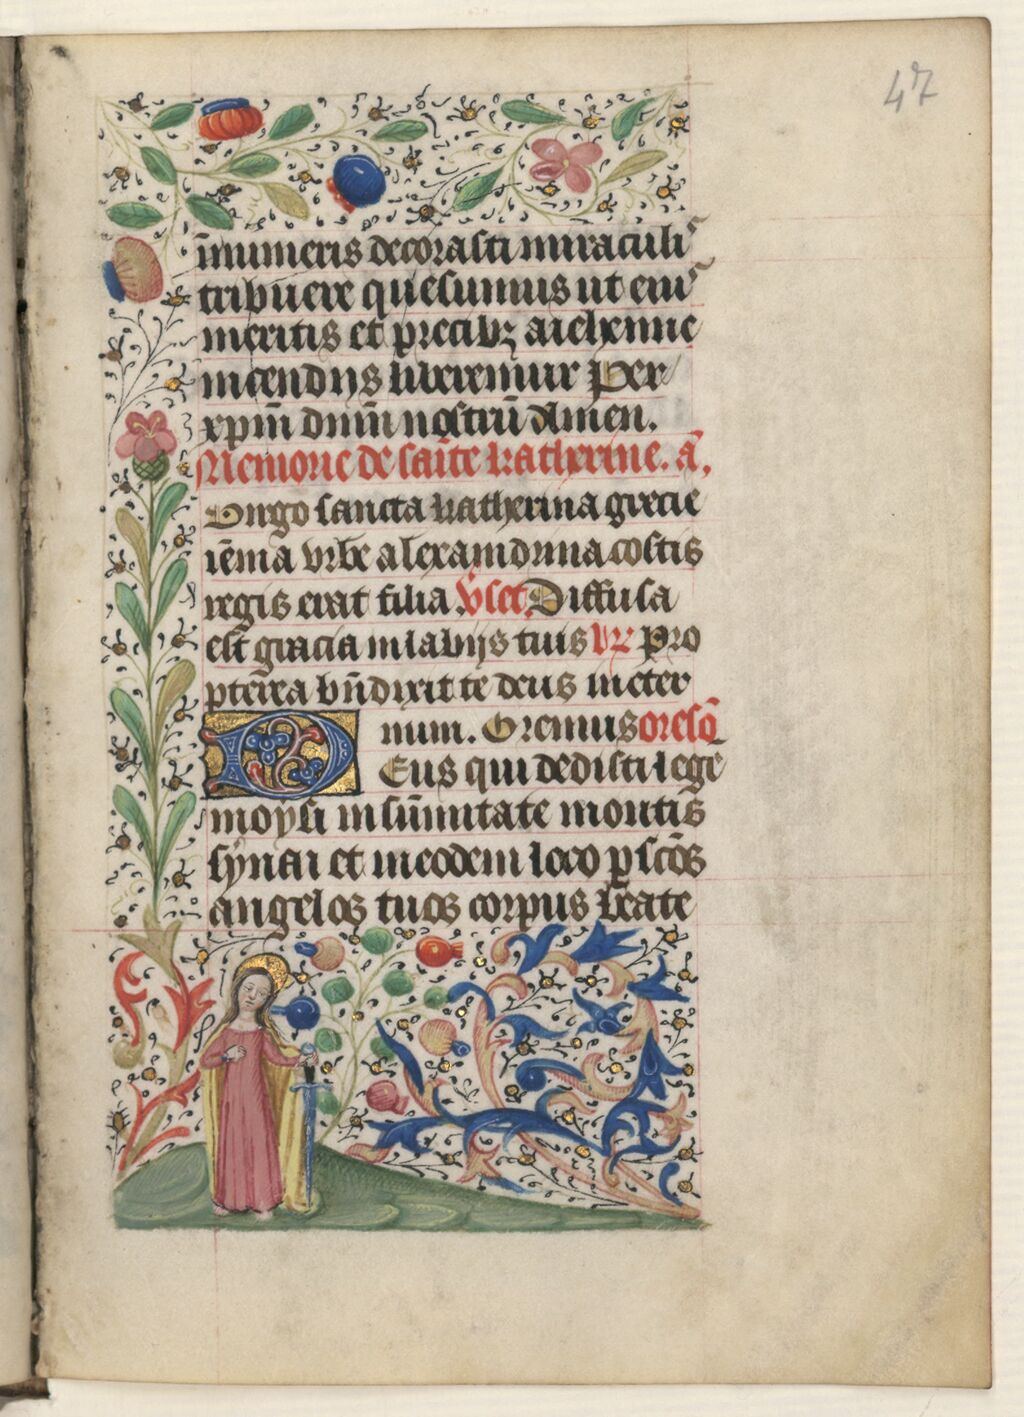 47
īnumeris decorasti miraculis
tribuere quesumus ut eius
meritis et precibꝫ a iehenne
incendijs liberemur Per
xpm̄ dnm̄ nostrū Amen.
Memorie de sainte katherine. ā.
Virgo sancta katherina grecie
iēma vrbe alexandrina costis
regis erat filia v̄set. Diffusa
est gracia in labijs tuis Rꝫ Pro
pterea bn̄dixit te deus in eter
num. Oremus oreso͂
Deus qui dedisti legē
moysi in sūmitate montis
synai et in eodem loco ꝑ sc̄os
angelos tuos corpus beate